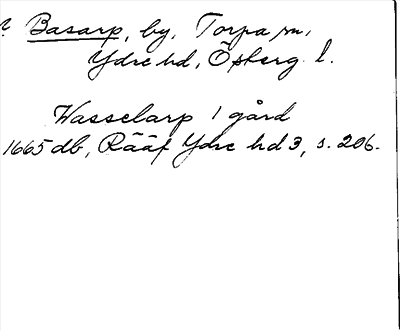 Basarp, by, Torpa sn,
Ydre hd, Österg. l.
Wasselarp 1 gård
1665 db, Rääf Ydre hd 3, s. 206.